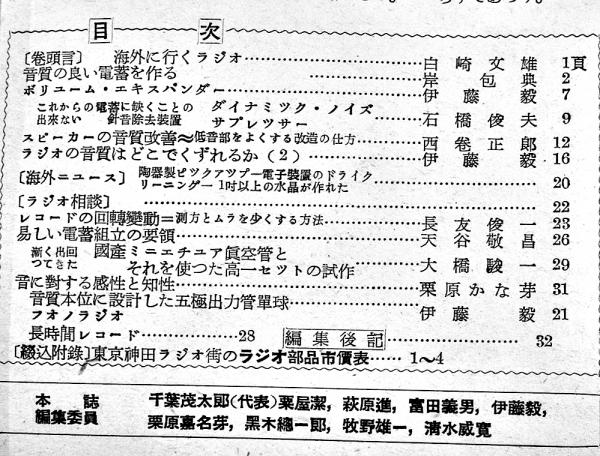 目次
〔卷頭言〕 海外に行くラジオ………白崎文雄 1頁
音質の良い電蓄を作る………岸包典 2
ボリユーム・エキスパンダー………伊藤毅 7
これからの電蓄に缺くことの出來ない 針音除去裝置 ダイナミツク・ノイズサプレツサー………石橋俊夫 9
スピーカーの音質改善≈低音部をよくする改造の仕方………西卷正郞 12
ラジオの音質はどこでくずれるか(2)………伊藤毅 16
〔海外ニユース〕 陶器製ピツクアツプー電子裝置のドライクリーニングー1吋以上の水晶が作れた………20
〔ラジオ相談〕………22
レコードの回轉變動=測方とムラを少くする方法………長友俊一 23
易しい電蓄組立の要領………天谷敬昌 26
漸く出回つてきた 國產ミニエチユア眞空管とそれを使つた高一セツトの試作………大橋駿一 29
音に對する感性と知性………栗原かな芽 31
音質本位に設計した五極出力管單球フオノラジオ………伊藤毅 21
長時間レコード………28
編集後記………32
〔綴込附錄〕東京神田ラジオ街のラジオ部品市價表……1〜4
本誌編集委員
千葉茂太郞(代表)粟屋潔, 萩原進, 富田義男, 伊藤毅,
栗原嘉名芽, 黑木總一郞, 牧野雄一, 淸水威寬